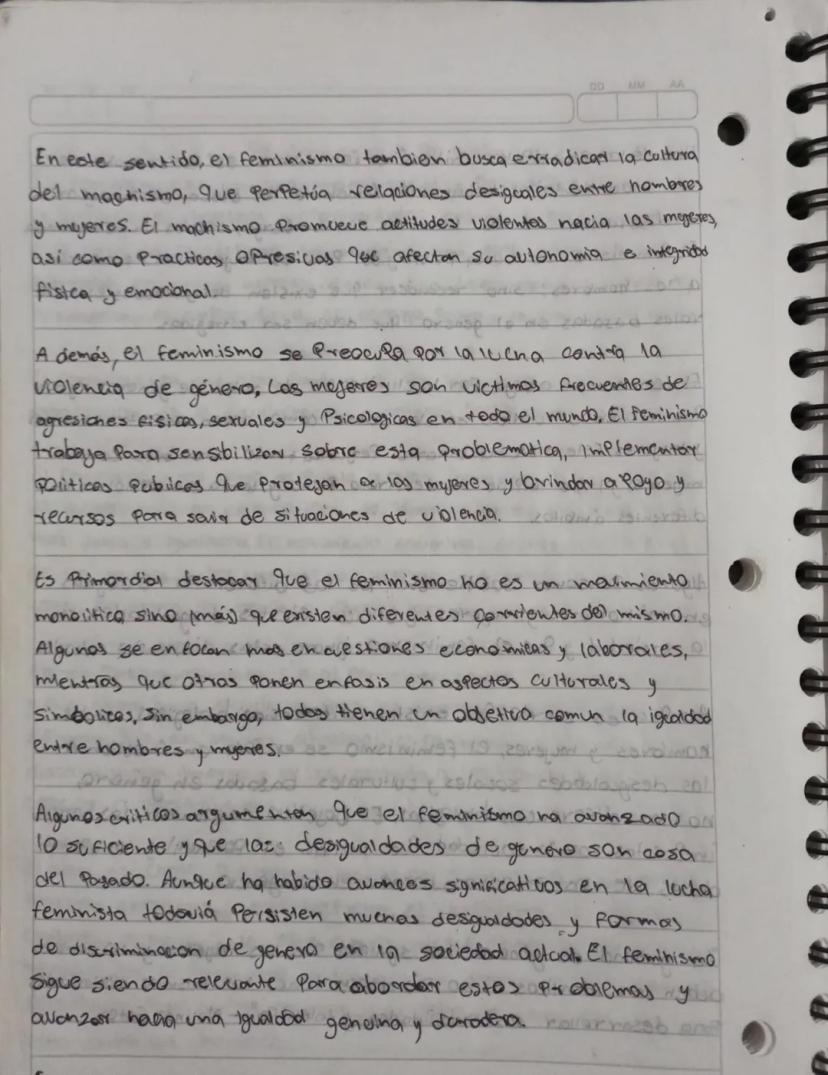 DD MM AA
En este sentido, el feminismo tambien busca erradicar la cultura
del machismo, que perpetúa relaciones desiguales entre hombres
y mujeres. El machismo promueve actitudes violentas hacia las mujeres,
así como practicas opresivas que afectan su autonomia e integridad
física y emocional.
Además, el feminismo se preocupa por la lucha contra la
violencia de género, Las mujeres son victimas frecuentes de
agresiones fisicas, sexuales y psicologicas en todo el mundo. El feminismo
trabaja para sensibilizar sobre esta problematica, implementar
politicas publicas que protejan a las mujeres y brindar apoyo y
recursos para salir de situaciones de violencia.
Es primordial destacar que el feminismo no es un movimiento
monolitico sino (más) que existen diferentes corrientes del mismo.
Algunas se enfocan mas en cuestiones economicas y laborales,
mientras que otras ponen enfasis en aspectos culturales y
simbolicos, sin embargo, todas tienen un objetivo comun la igualdad
entre hombres y mujeres.
Algunos criticos argumentan que el feminismo ha avanzado
lo suficiente y que las desigualdades de genero son cosa
del pasado. Aunque ha habido avances significativos en la lucha
feminista todaviá persisten muchas desigualdades y formas
de discriminacion de genero en la sociedad actual. El feminismo
sigue siendo relevante para abordar estos problemas y
avanzar hacia una igualdad genuina y duradera.